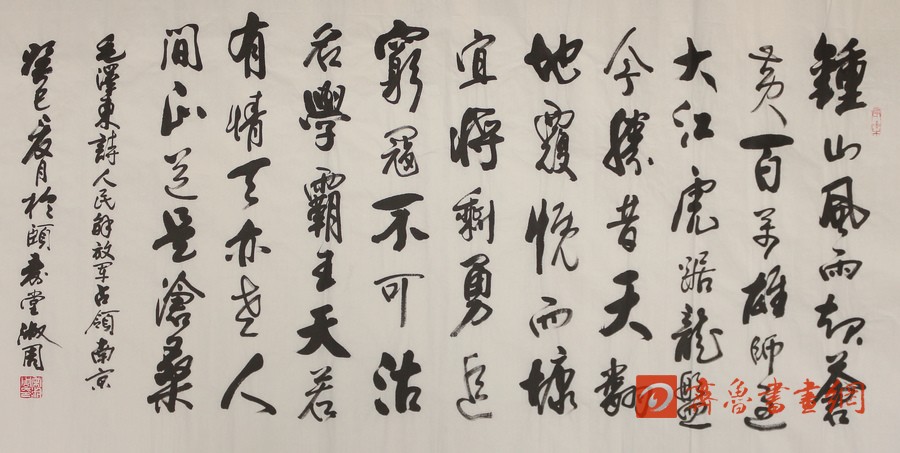 鍾山風雨起蒼
黃百萬雄師過
大江虎踞龍盤
今勝昔天翻
地覆慨而慷
宜將剩勇追
窮寇不可沽
名學霸王天若
有情天亦老人
間正道是滄桑
毛澤東詩人民解放军占領南京
癸巳夏月於頤壽堂淑周
齊魯書畫網